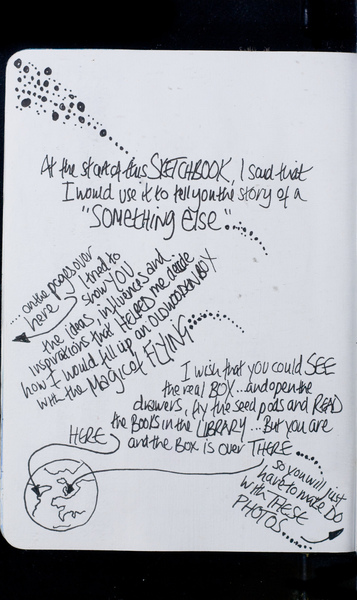 At the start of this SKETCHBOOK, I said that
I would use it to tell you the story of a
"SOMETHING ELSE"...
...on the pages over
here I tried to
show YOU
the ideas, influences and
inspirations that HELPED me decide
how I would fill up an OLD WOODEN BOX
with the MAGIC of FLYING
I wish that you could SEE
the real BOX...and open the
drawers, fly the seed pods and READ
the BOOKS in the LIBRARY...But you are
HERE
and the BOX is over THERE...
so you will just
have to make DO
with THESE
PHOTOS...